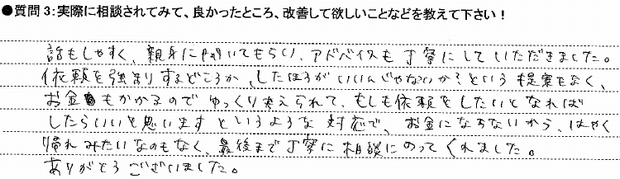 ●質問3:実際に相談されてみて、良かったところ、改善して欲しいことなどを教えて下さい！
話もしやすく、親身にきいてもらい、アドバイスも丁寧にしていただきました。
依頼を強まりするどころか、したほうがいいんじゃないか？という提案もなく、
お金もかかるのでゆっくり考えられて、もしも依頼をしたいとなれば
したらいいと思いますというような対応で、お金にならないから、はやく
帰れみたいなのもなく、最後まで丁寧に相談にのってくれました。
ありがとうございました。